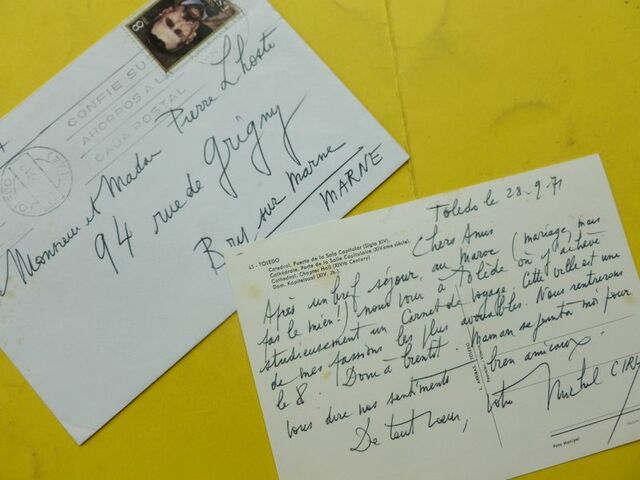 CONFIE SU
AHORROS A LA
CAJA POSTAL
8
Monsieur et Madame Pierre Lhoste
94 rue de Grigny
Bry sur Marne
MARNE
45 - TOLEDO
Catedral. Puerta de la Sala Capitular (Siglo XIV).
Cathédrale. Porte de la Salle Capitulaire (XIVème siècle).
Cathedral. Chapter Hall (XIVth Century)
Dom. Kapitelsaal (XIV. Jh.).
Toledo le 28.9.71
Chers Amis
Après un bref séjour au Maroc (mariage, mais
pas le mien!) nous voici à Tolède où j'achève
studieusement un Carnet de Voyage. Cette ville est une
de mes passions les plus avouables. Nous rentrerons
le 8. Donc à bientôt. Maman se joint à moi pour
vous dire nos sentiments bien amicaux.
De tout cœur, votre
Michel CIRY
Foto Municipal